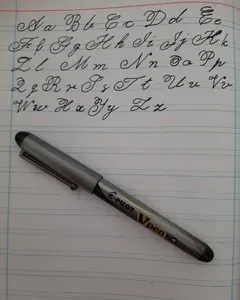 Aa Bb Cc Dd Ee
Ff Gg Hh Ii Jj Kk
Ll Mm Nn Oo Pp
Qq Rr Ss Tt Uu Vv
Ww Xx Yy Zz
PILOT
Vpen